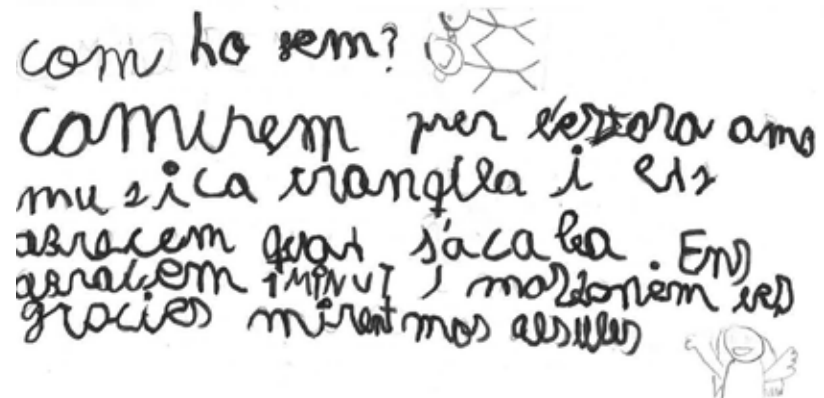 com ho sem?
caminem per l'estora amb
musica tranqila i ens
abracem quan s'acaba. Ens
abracem 1 MINUT i mos donem les
gracies mirant mos als ulls